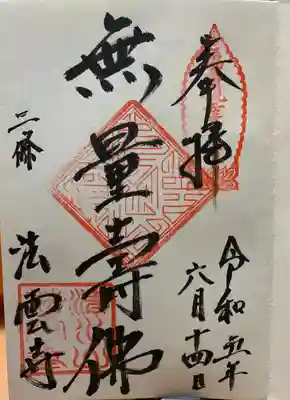 奉拝
令和五年
六月十四日
無量壽佛
二條
法雲寺